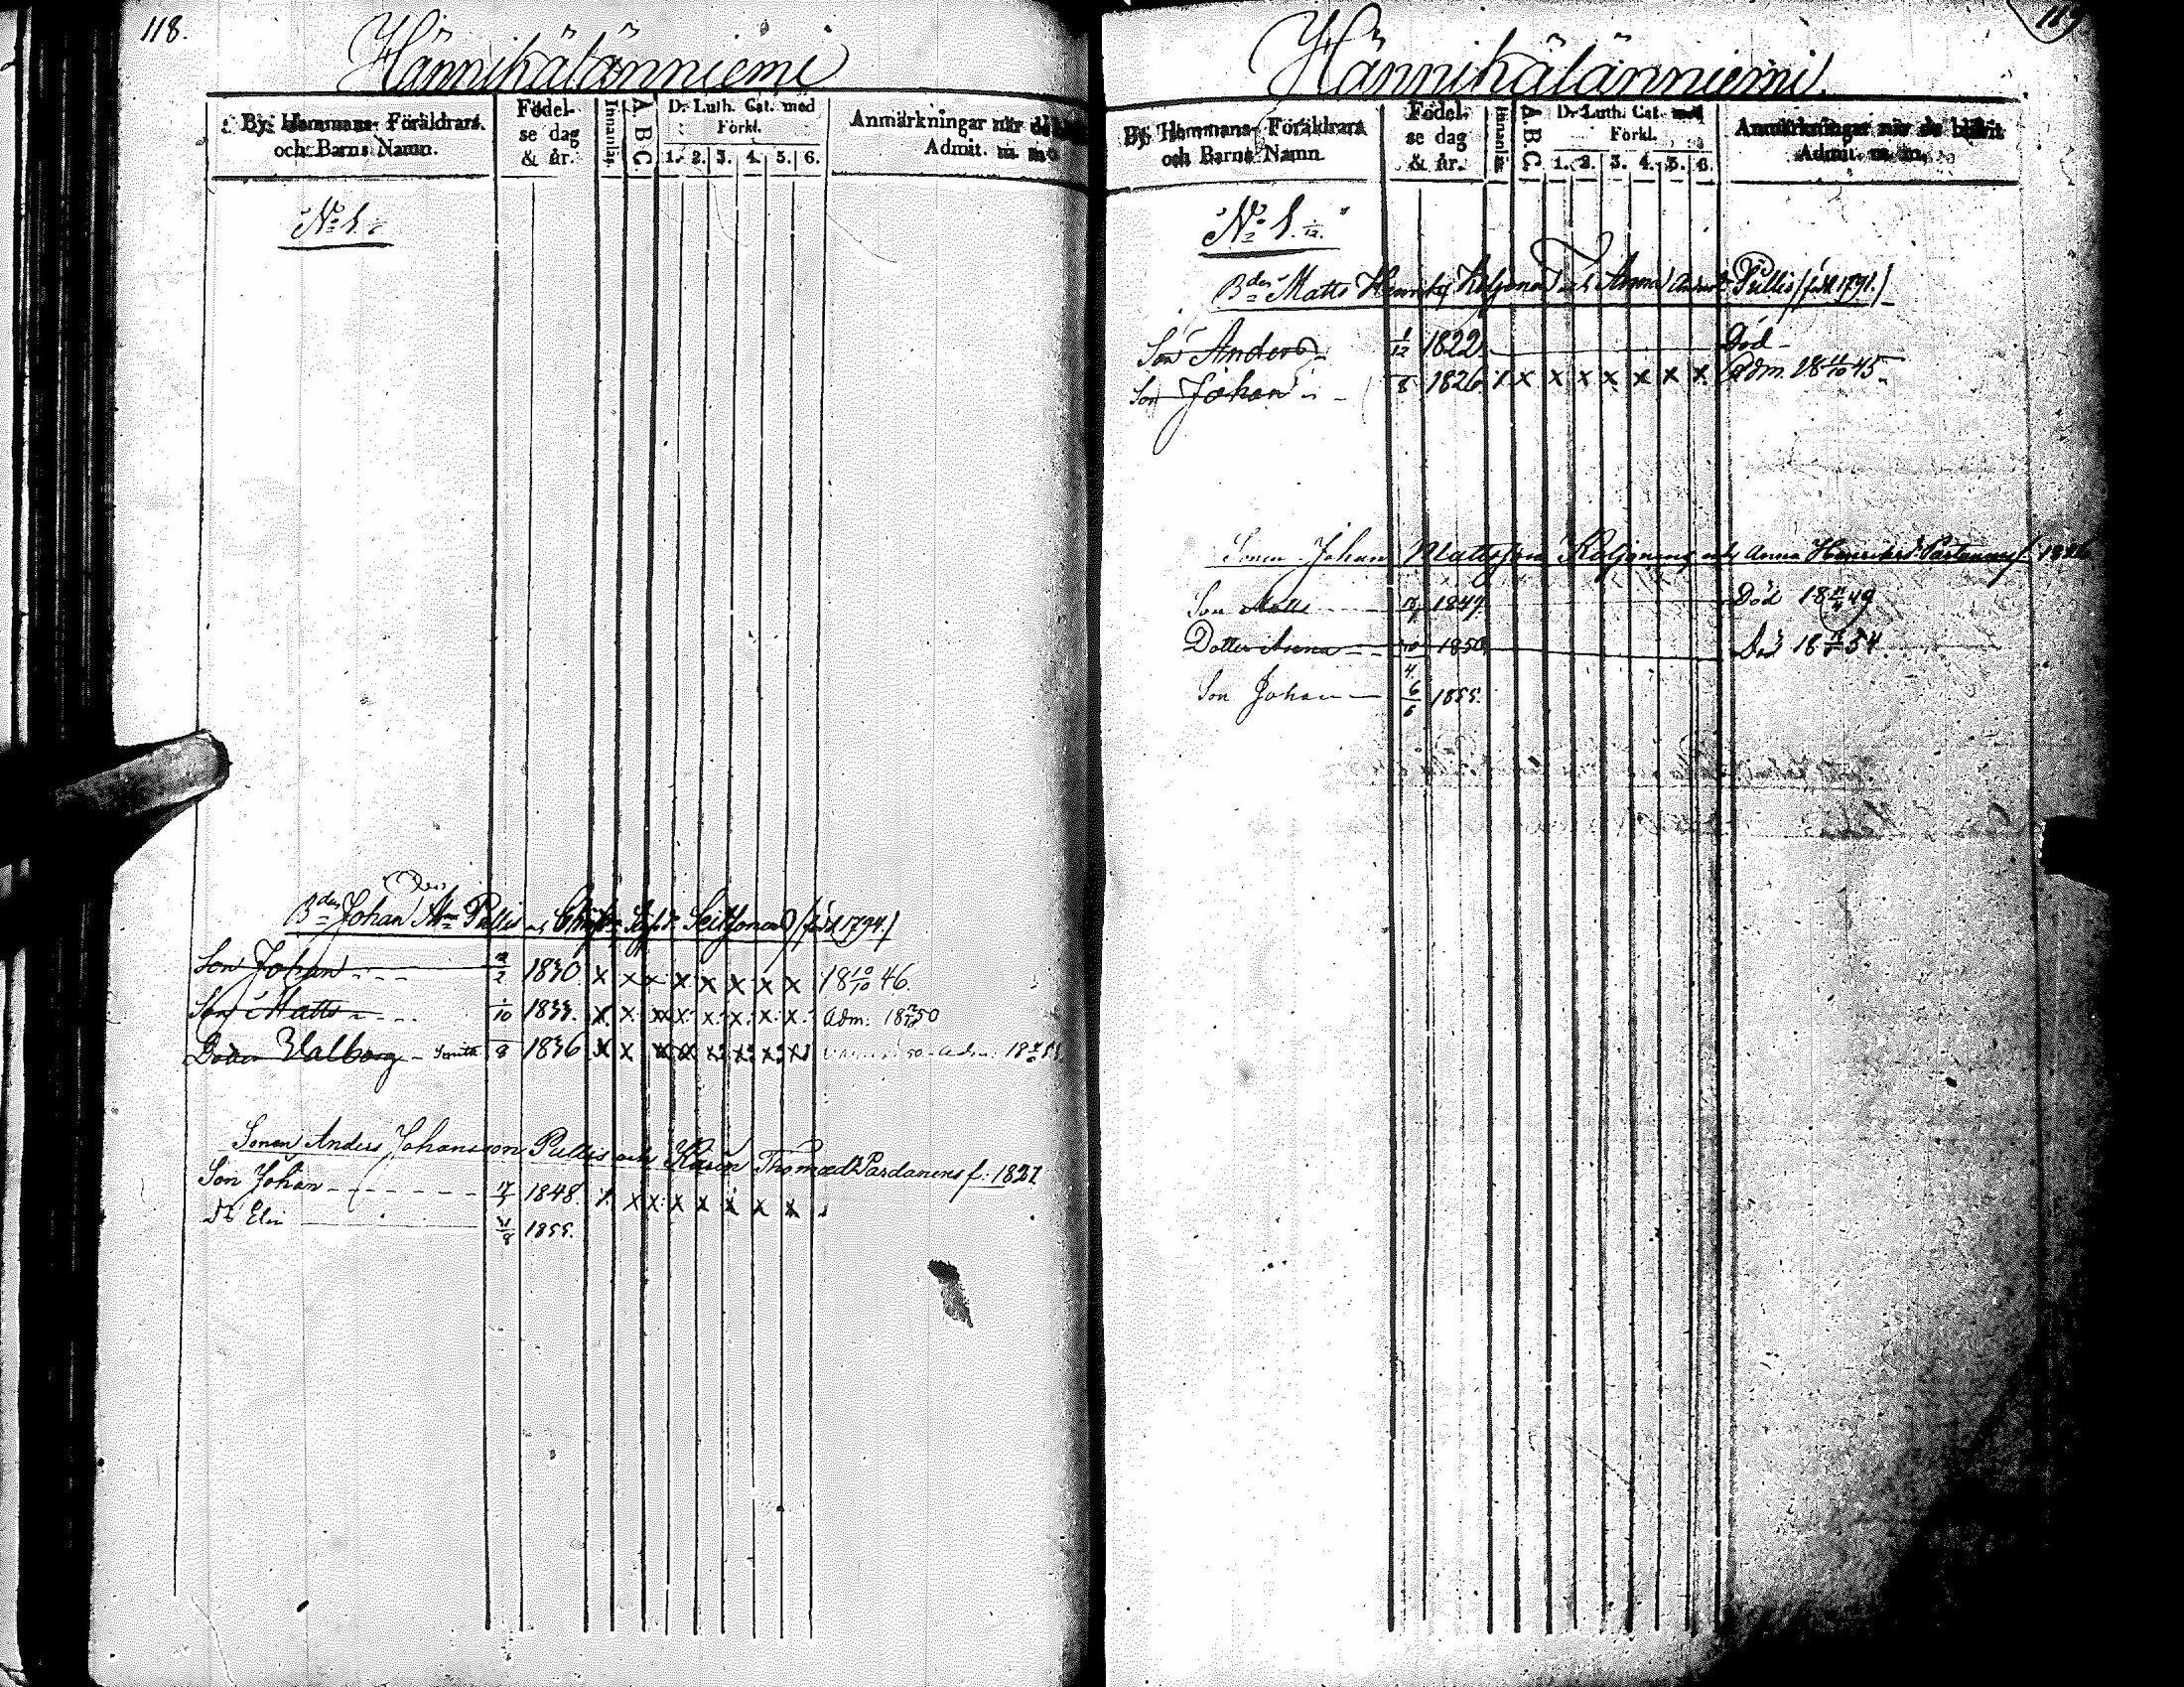 118.
Hännikälänniemi
By. Hemmans- Föräldrars och Barns Namn.
Födelse dag & år.
Innanläs.
A. B. C.
Dr. Luth. Cat. med Förkl.
1. 2. 3. 4. 5. 6.
Anmärkningar när de
Admit. m m
No 1.
Bden Johan Pullis Seitsonen (född 1794.)
Son Johan 2 1830 x x x x x x x x 18 10/10 46.
Son Matts 10 1833. x x x x x x x x Adm. 18 50
Dotter Valborg 8 1836 x x x x x x x x Adm. 18
Sonen Anders Johansson Pullis och Karin Thomæd: Pardanens f: 1827
Son Johan 17 1848. x x x x x x x x
Do Elin 8 1855.
119
Hännikälänniemi
By. Hemmans- Föräldrars och Barns Namn.
Födelse dag & år.
Innanläs.
A. B. C.
Dr. Luth. Cat. med Förkl.
1. 2. 3. 4. 5. 6.
Anmärkningar när de blifvit
Admit. m. m.
No 1. 
Bden Matts Koljonen och Anna Pullis (född 1791.)
Son Anders 1/12 1822 Död
Son Johan 8 1826 x x x x x x x x Adm. 18 45
Sonen Johan Mattsson Koljonens och Anna Henriksd: Partanens f. 1826
Son Matts 1847. Död 18 49
Dotter Anna 1850 Död 18 54
Son Johan 6/6 1855.